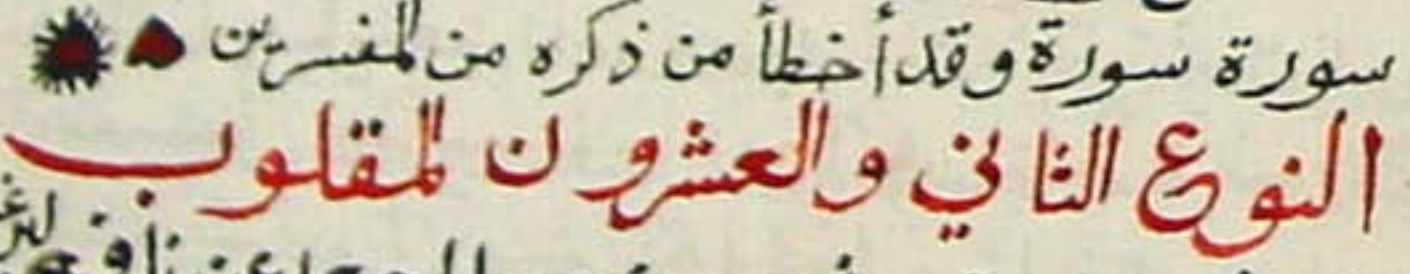 سورة سورة وقد أخطأ من ذكره من المفسرين
النوع الثاني والعشرون المقلوب